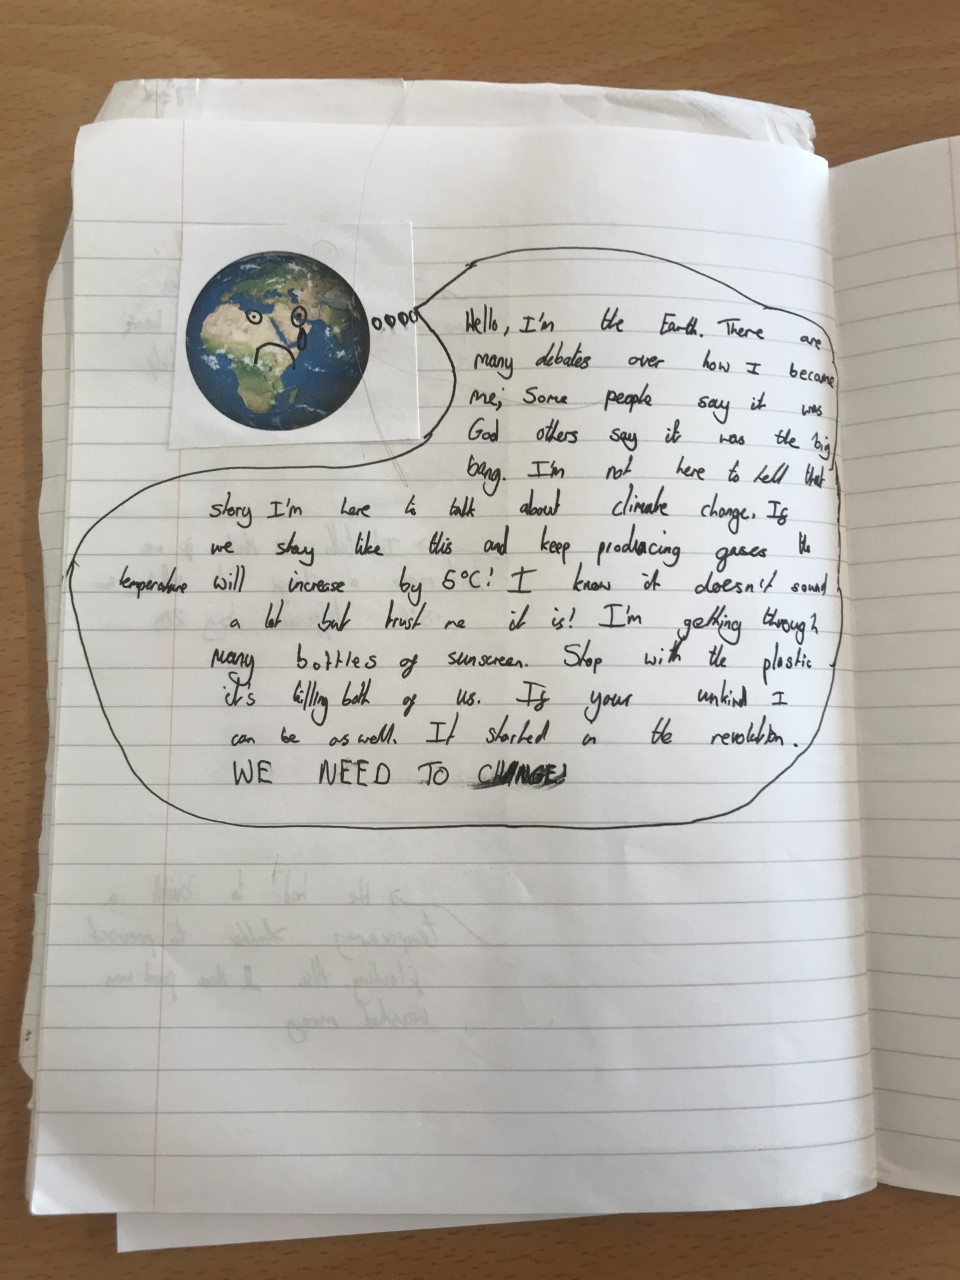 Hello, I'm the Earth. There are
many debates over how I became
me; Some people say it was
God others say it was the big
bang. I'm not here to tell that
story I'm here to talk about climate change. If
we stay like this and keep producing gases the
temperature will increase by 5°C! I know it doesn't sound
a lot but trust me it is! I'm getting through
many bottles of sunscreen. Stop with the plastic
it's killing both of us. If your unkind I
can be as well. It started in the revolution.
WE NEED TO CHANGE!